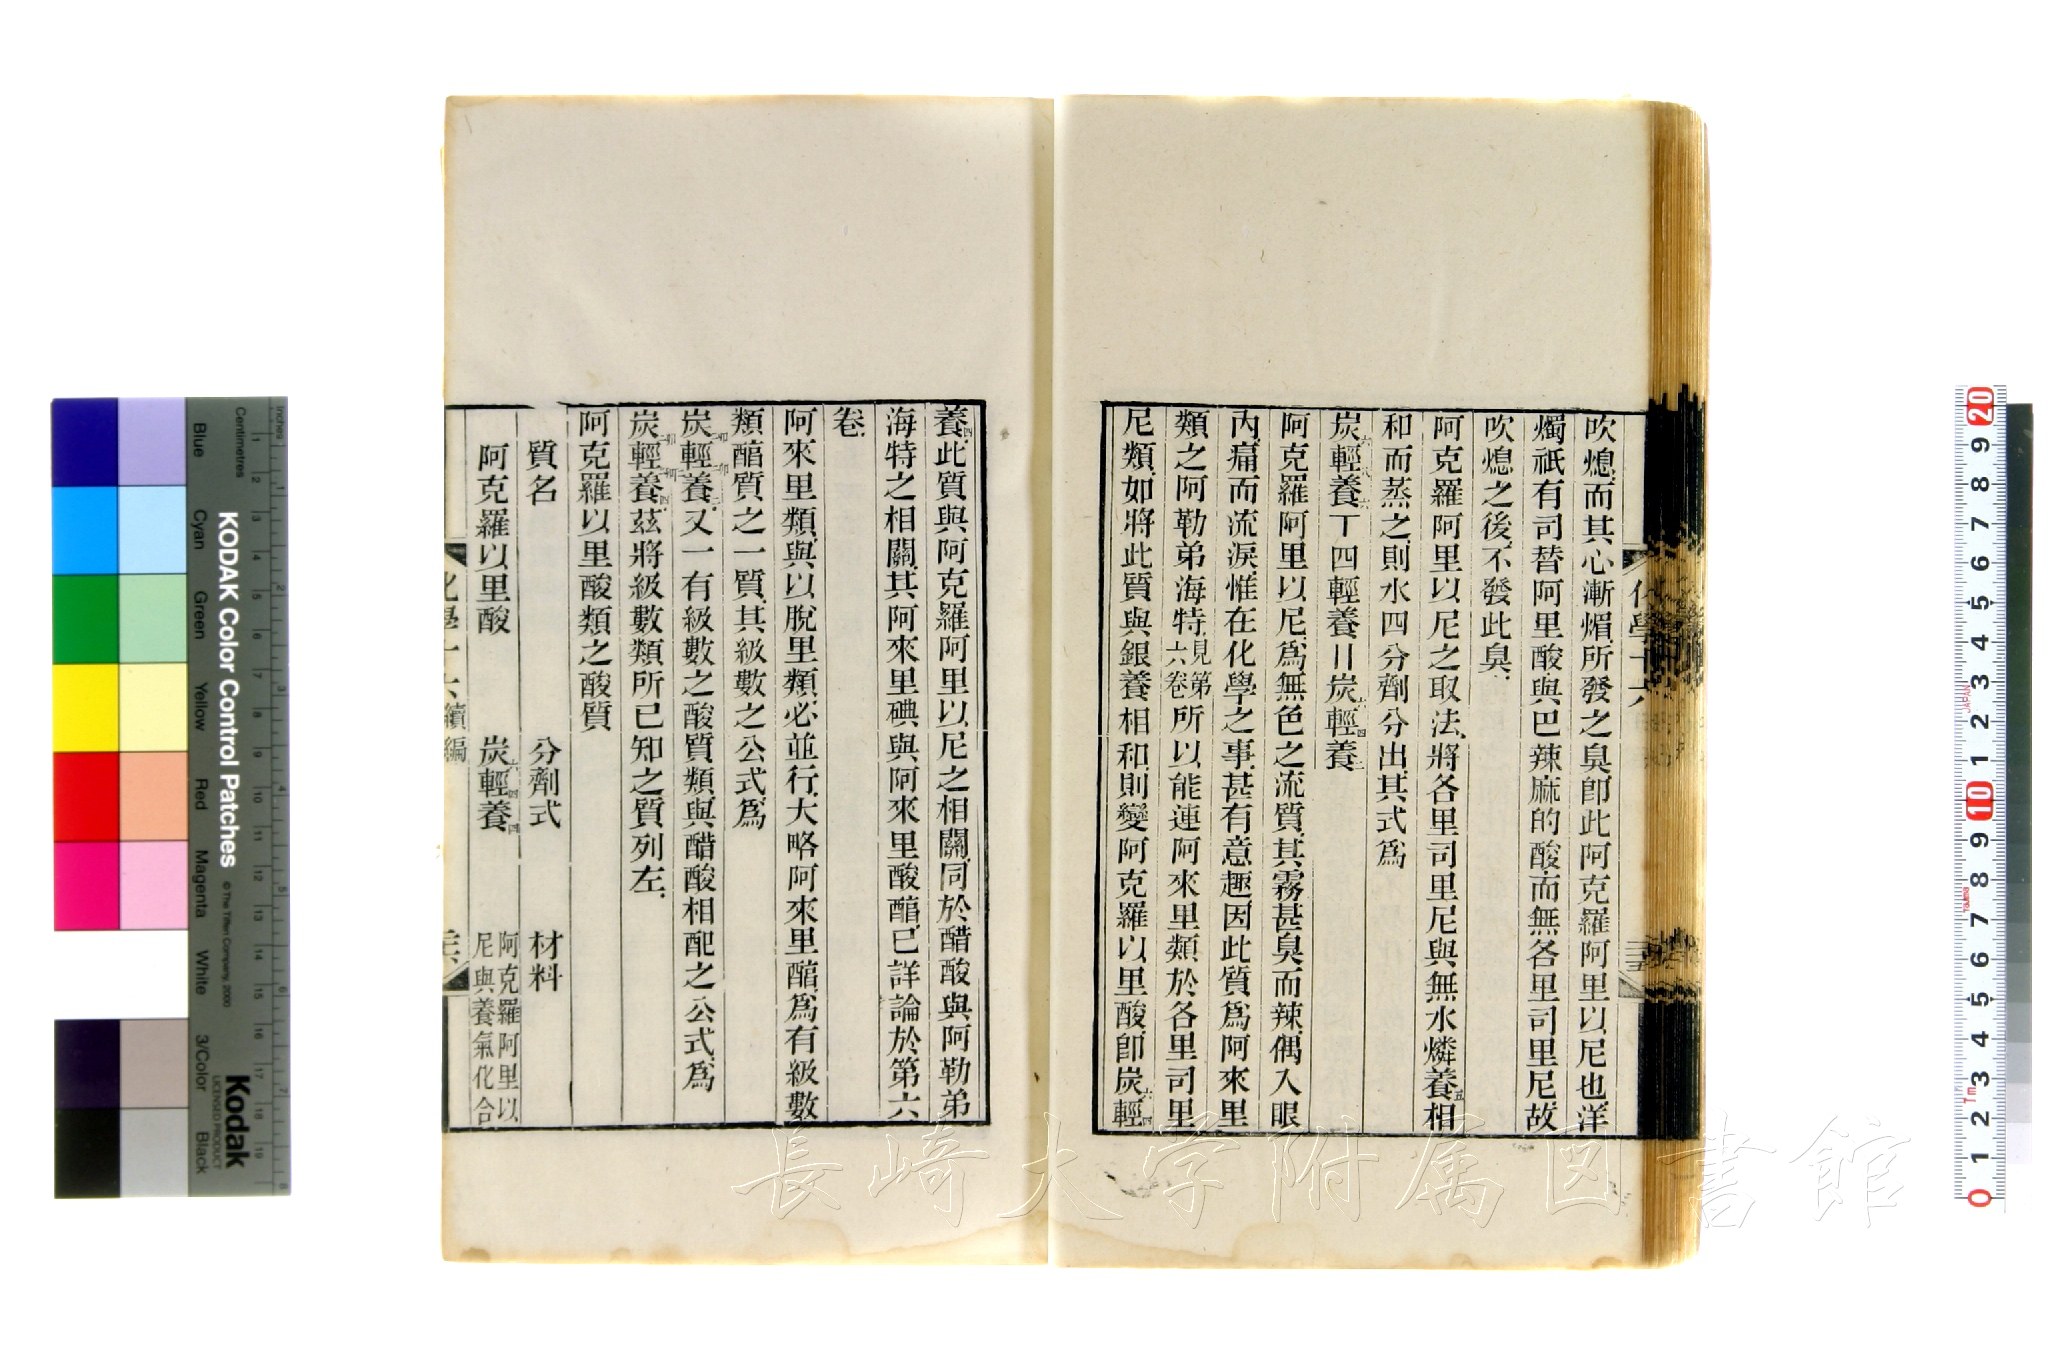 吹熄而其心漸熸所發之臭卽此阿克羅阿里以尼也洋
燭祇有司替阿里酸與巴辣麻的酸而無各里司里尼故
吹熄之後不發此臭
阿克羅阿里以尼之取法將各里司里尼與無水燐養五相
和而蒸之則水四分劑分出其式爲
炭六輕八養六丅四輕養〢炭六輕四養二
阿克羅阿里以尼爲無色之流質其霧甚臭而辣偶入眼
內痛而流淚惟在化學之事甚有意趣因此質爲阿來里
類之阿勒弟海特見第六卷所以能連阿來里類於各里司里
尼類如將此質與銀養相和則變阿克羅以里酸卽炭六輕四
養四此質與阿克羅阿里以尼之相關同於醋酸與阿勒弟
海特之相關其阿來里碘與阿來里酸䤃已詳論於第六
卷
阿來里類與以脫里類必並行大略阿來里䤃爲有級數
類䤃質之一質其級數之公式爲
炭輕養又一有級數之酸質類與醋酸相配之公式爲
炭輕養四茲將級數類所已知之質列左
阿克羅以里酸類之酸質
質名 分劑式 材料
阿克羅以里酸 炭六輕四養四 阿克羅阿里以尼與養氣化合
化學十六
化學十六續編
長崎大学附属図書館
KODAK Color Control Patches
© The Tiffen Company, 2000
Kodak
LICENSED PRODUCT
Inches
Centimetres
Blue
Cyan
Green
Yellow
Red
Magenta
White
3/Color
Black
JAPAN